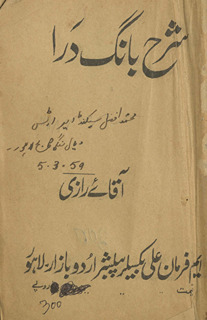 شرح بانگ درا
محمد افضل سیکنڈ ایر آرٹس
5-3-59
آقائے رازی
ایم فرمان علی بکسیلر پبلشر اردو بازار-لاہور
قیمت روپے
300